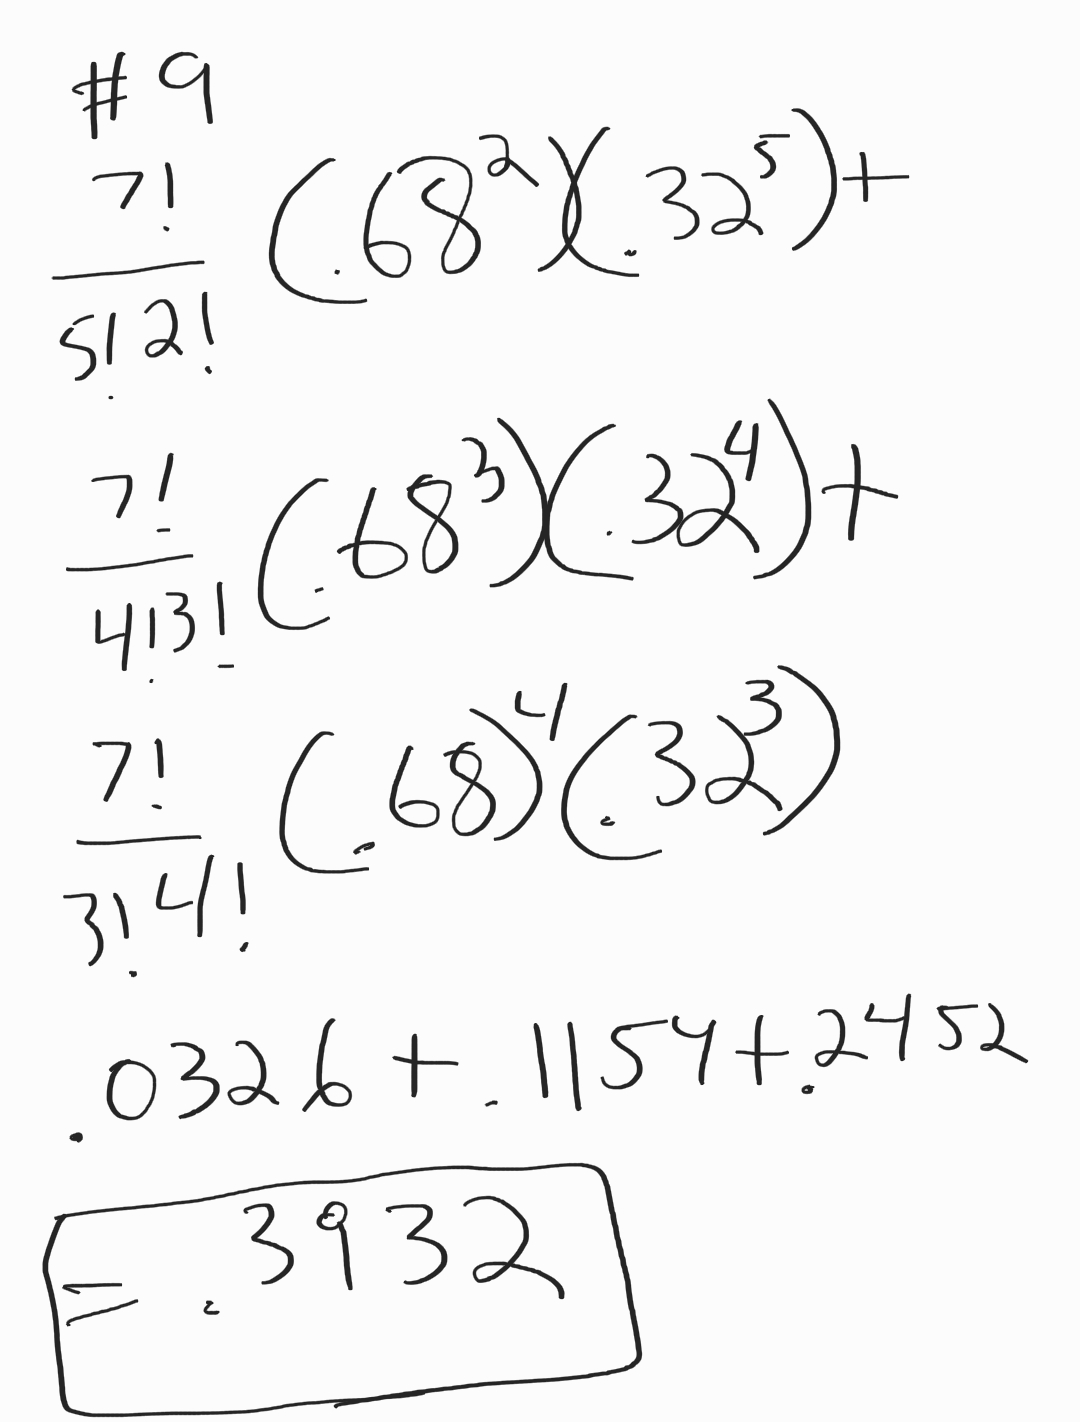 #9
7!
5!2!
(.68²)(.32⁵)+
7!
4!3!
(.68³)(.32⁴)+
7!
3!4!
(.68)⁴(.32³)
.0326+.1154+.2452
=.3932